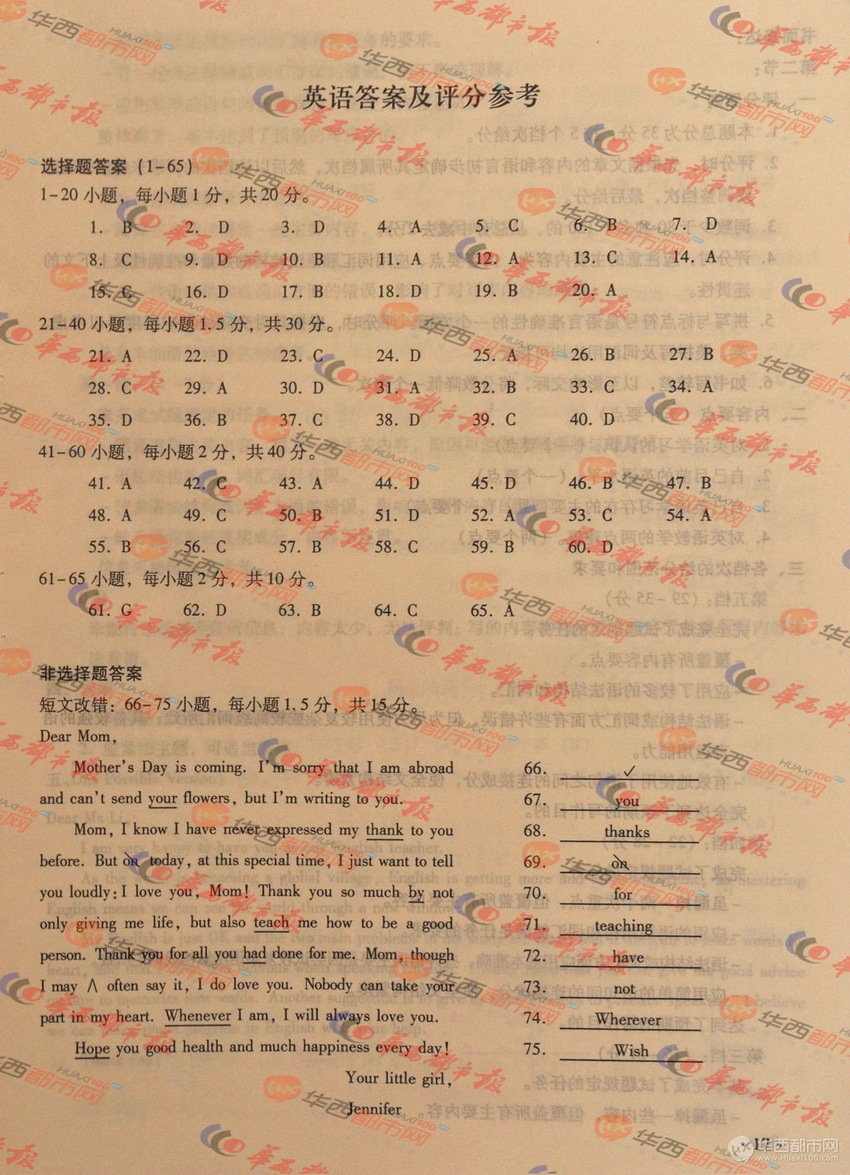 英语答案及评分参考
选择题答案(1-65)
1-20小题，每小题1分，共20分。
1. B 2. D 3. D 4. A 5. C 6. B 7. D
8. C 9. D 10. B 11. A 12. A 13. C 14. A
15. C 16. D 17. B 18. D 19. B 20. A
21-40小题，每小题1.5分，共30分。
21. A 22. D 23. C 24. D 25. A 26. B 27. B
28. C 29. A 30. D 31. A 32. B 33. C 34. A
35. D 36. B 37. C 38. D 39. C 40. D
41-60小题，每小题2分，共40分。
41. A 42. C 43. A 44. D 45. D 46. B 47. B
48. A 49. C 50. B 51. D 52. A 53. C 54. A
55. B 56. C 57. B 58. C 59. B 60. D
61-65小题，每小题2分，共10分。
61. G 62. D 63. B 64. C 65. A
非选择题答案
短文改错：66-75小题，每小题1.5分，共15分。
Dear Mom,
Mother's Day is coming. I'm sorry that I am abroad 66. ✓
and can't send your flowers, but I'm writing to you. 67. you
Mom, I know I have never expressed my thank to you 68. thanks
before. But on today, at this special time, I just want to tell 69. on
you loudly: I love you, Mom! Thank you so much by not 70. for
only giving me life, but also teach me how to be a good 71. teaching
person. Thank you for all you had done for me. Mom, though 72. have
I may ∧ often say it, I do love you. Nobody can take your 73. not
part in my heart. Whenever I am, I will always love you. 74. Wherever
Hope you good health and much happiness every day! 75. Wish
Your little girl,
Jennifer
华西都市报
华西都市网
HUAXI100.com
华西都市网
www.Huaxi100.com